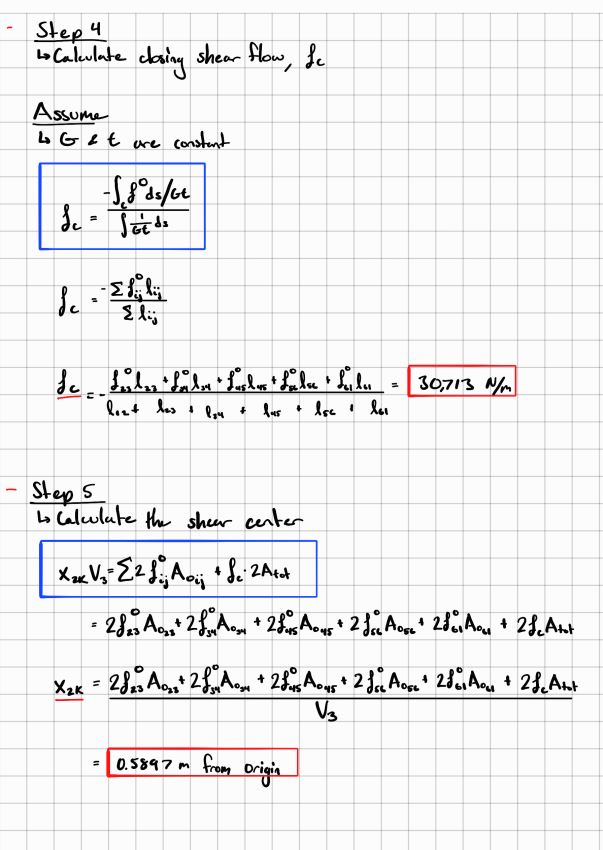 - Step 4
↳ Calculate closing shear flow, f_c
Assume
↳ G & t are constant
f_c = -∫_c f° ds/Gt / ∫ 1/Gt ds
f_c = - Σ f°_ij l_ij / Σ l_ij
f_c = - f°_23 l_23 + f°_34 l_34 + f°_45 l_45 + f°_56 l_56 + f°_61 l_61 / l_12 + l_23 + l_34 + l_45 + l_56 + l_61 = 30,713 N/m
- Step 5
↳ Calculate the shear center
X_2K V_3 = Σ 2 f°_ij A_0ij + f_c · 2A_tot
= 2f°_23 A_023 + 2f°_34 A_034 + 2f°_45 A_045 + 2f°_56 A_056 + 2f°_61 A_061 + 2f_c A_tot
X_2K = 2f°_23 A_023 + 2f°_34 A_034 + 2f°_45 A_045 + 2f°_56 A_056 + 2f°_61 A_061 + 2f_c A_tot / V_3
= 0.5897 m from origin